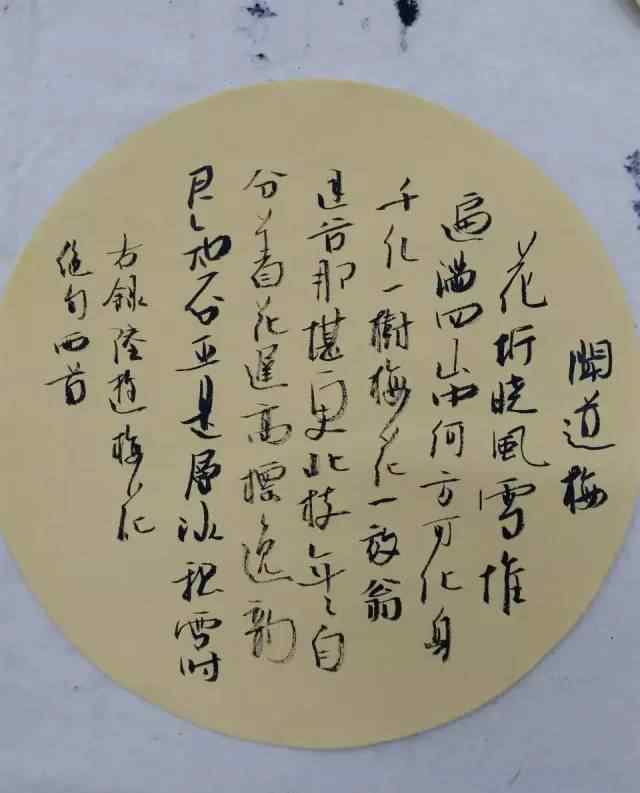 聞道梅
花坼晓風雪堆
遍满四山中何方可化身
千亿一樹梅花一放翁
谷那堪更北枝年々自
分着花遲高標逸韵
君知否正是层冰积雪时
右録陸游梅花
絕句两首